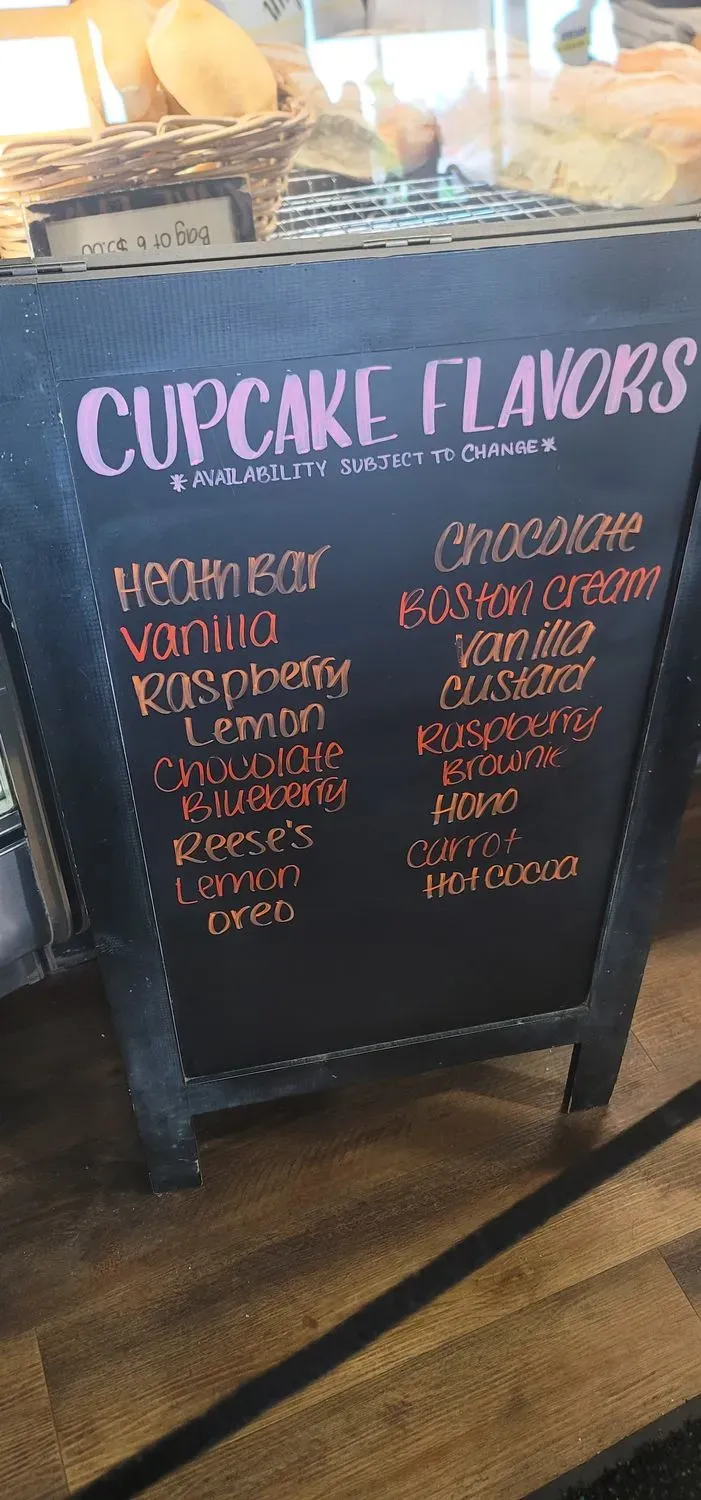 Bag of 6 $5.00
CUPCAKE FLAVORS
*AVAILABILITY SUBJECT TO CHANGE*
Heath Bar
Vanilla
Raspberry
Lemon
Chocolate
Blueberry
Reese's
Lemon
Oreo
Chocolate
Boston Cream
Vanilla
Custard
Raspberry
Brownie
HoHo
Carrot
Hot cocoa